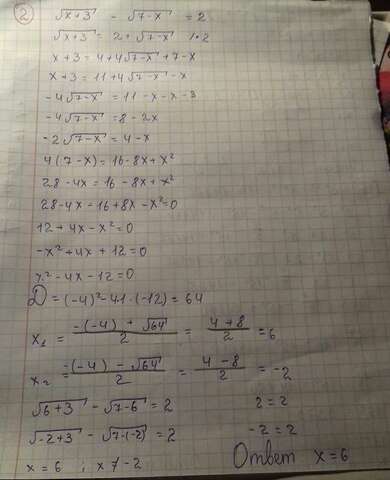 ②
√x+3 - √7-x = 2
√x+3 = 2+√7-x |^2
x+3 = 4+4√7-x +7-x
x+3 = 11+4√7-x -x
-4√7-x = 11-x-x-3
-4√7-x = 8-2x
-2√7-x = 4-x
4(7-x) = 16-8x+x²
28-4x = 16-8x+x²
28-4x-16+8x-x²=0
12+4x-x²=0
-x²+4x+12=0
x²-4x-12=0
D = (-4)²-4·1·(-12) = 64
x₁ = (-(-4)+√64)/2 = (4+8)/2 = 6
x₂ = (-(-4)-√64)/2 = (4-8)/2 = -2
√6+3 - √7-6 = 2 2=2
√-2+3 - √7-(-2) = 2 -2=2
x=6 ; x≠-2 Ответ x=6